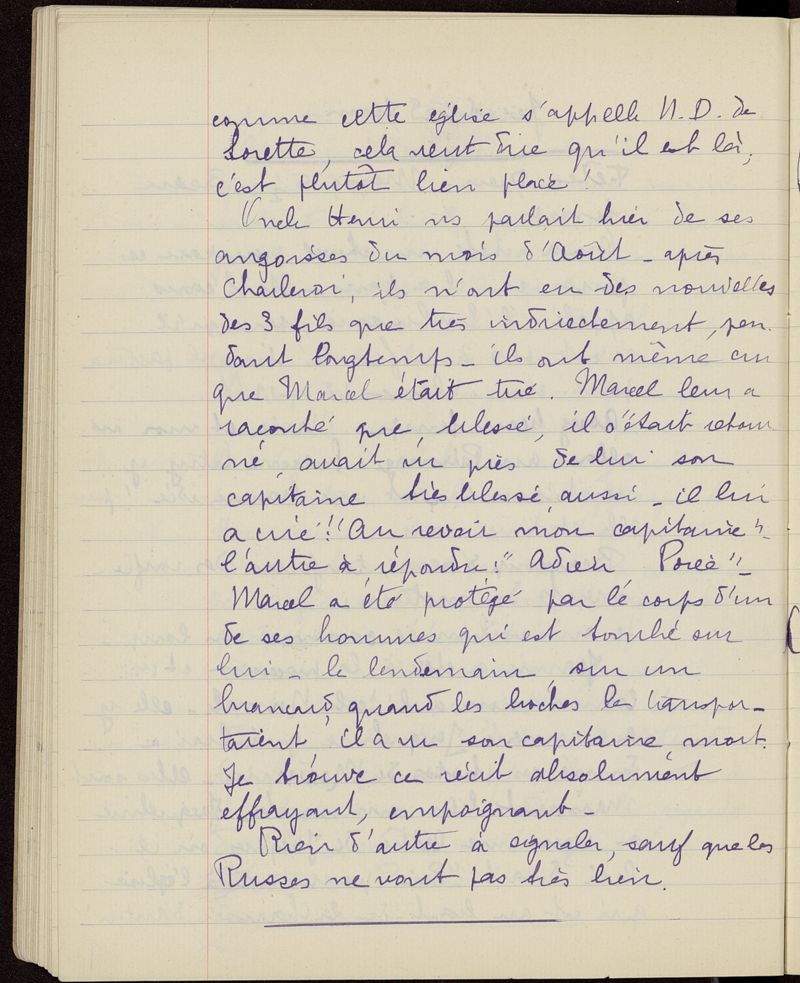 comme cette église s'appelle N.D. de
Lorette, cela veut dire qu'il est là,
c'est plutôt bien placé !
Oncle Henri ns parlait hier de ses
angoisses du mois d'Août - après
Charleroi, ils n'ont eu des nouvelles
des 3 fils que très indirectement, pen-
dant longtemps - ils ont même cru
que Marcel était tué. Marcel leur a
raconté que, blessé, il s'était retour
né, avait vu près de lui son
capitaine très blessé, aussi - il lui
a crié !" Au revoir mon capitaine" -
l'autre à répondu : " Adieu Porée" -
Marcel a été protégé par le corps d'un
de ses hommes qui est tombé sur
lui - le lendemain, sur un
brancard, quand les boches le transpor-
taient, il a vu son capitaine mort.
Je trouve ce récit absolument
effrayant, empoignant -
Rien d'autre à signaler, sauf que les
Russes ne vont pas très bien.